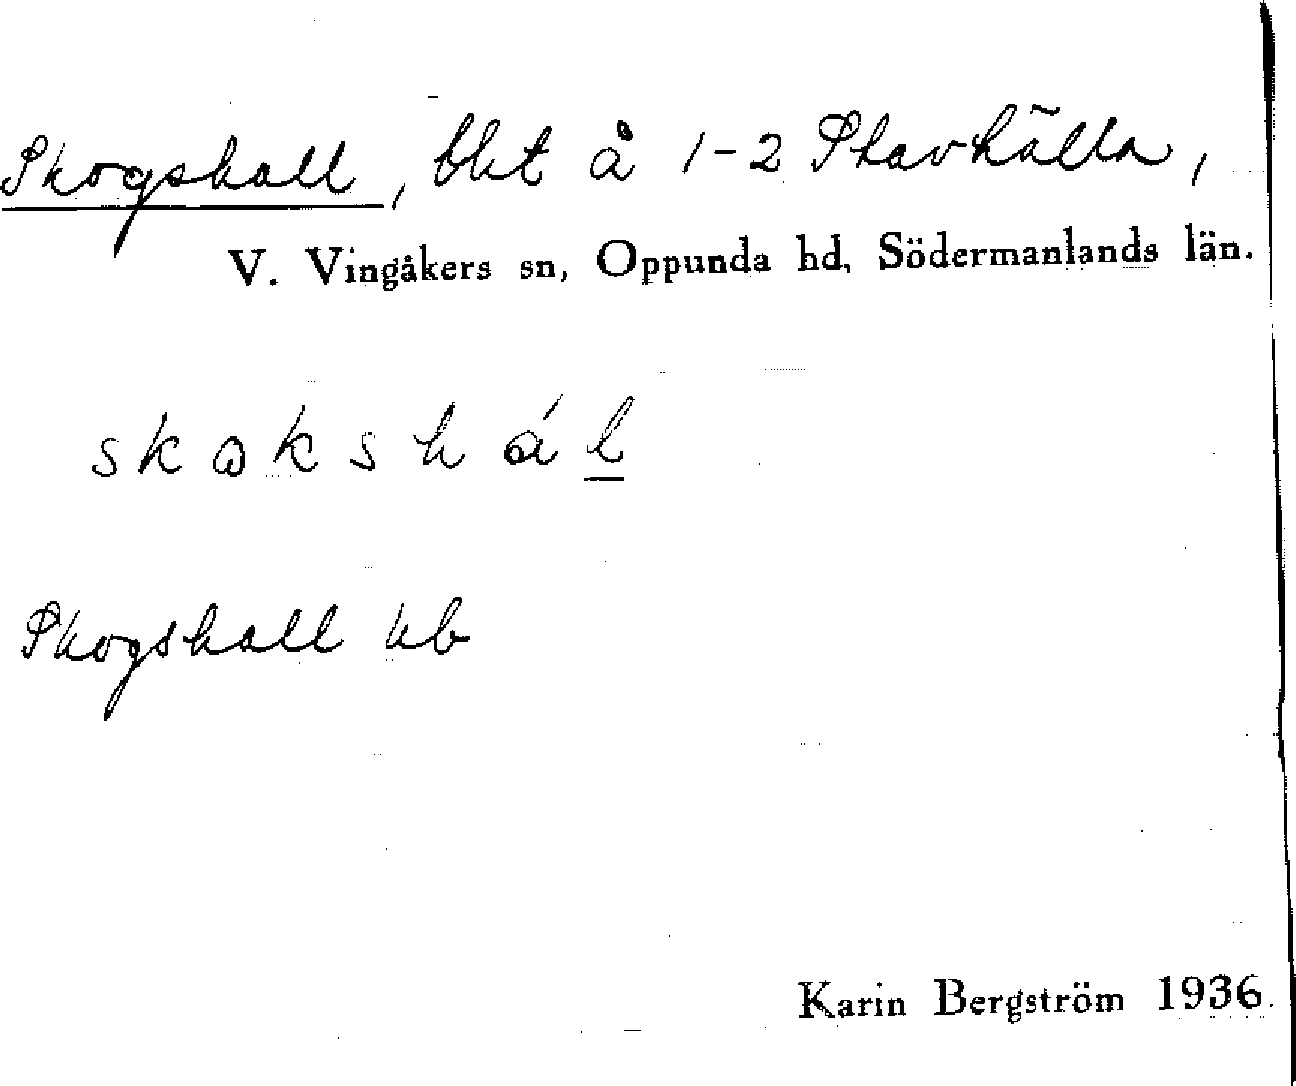 Skogshall, bht å 1-2 Skavhälla,
V. Vingåkers sn, Oppunda hd, Södermanlands län.
skokshál
Skogshall kb
Karin Bergström 1936